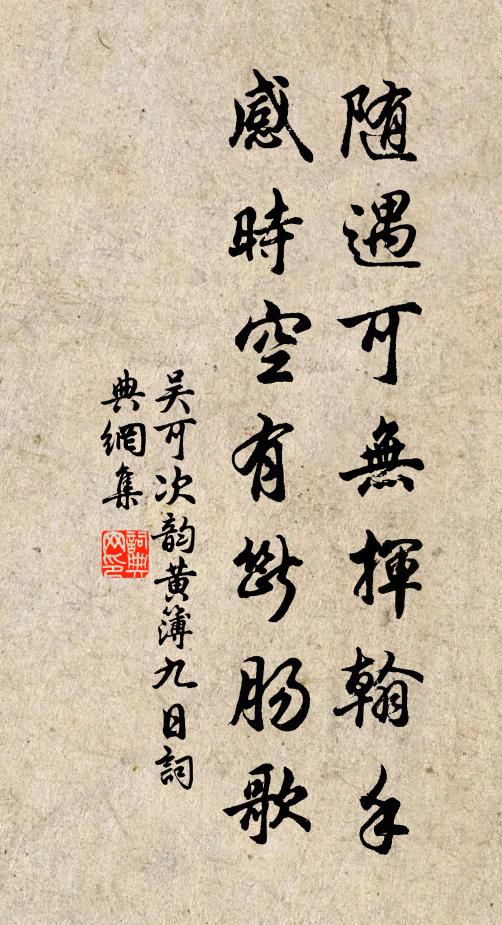 随遇可無揮翰手
感時空有斷腸歌
吴可次韵黄簿九日詞
典網集
詞典
网印